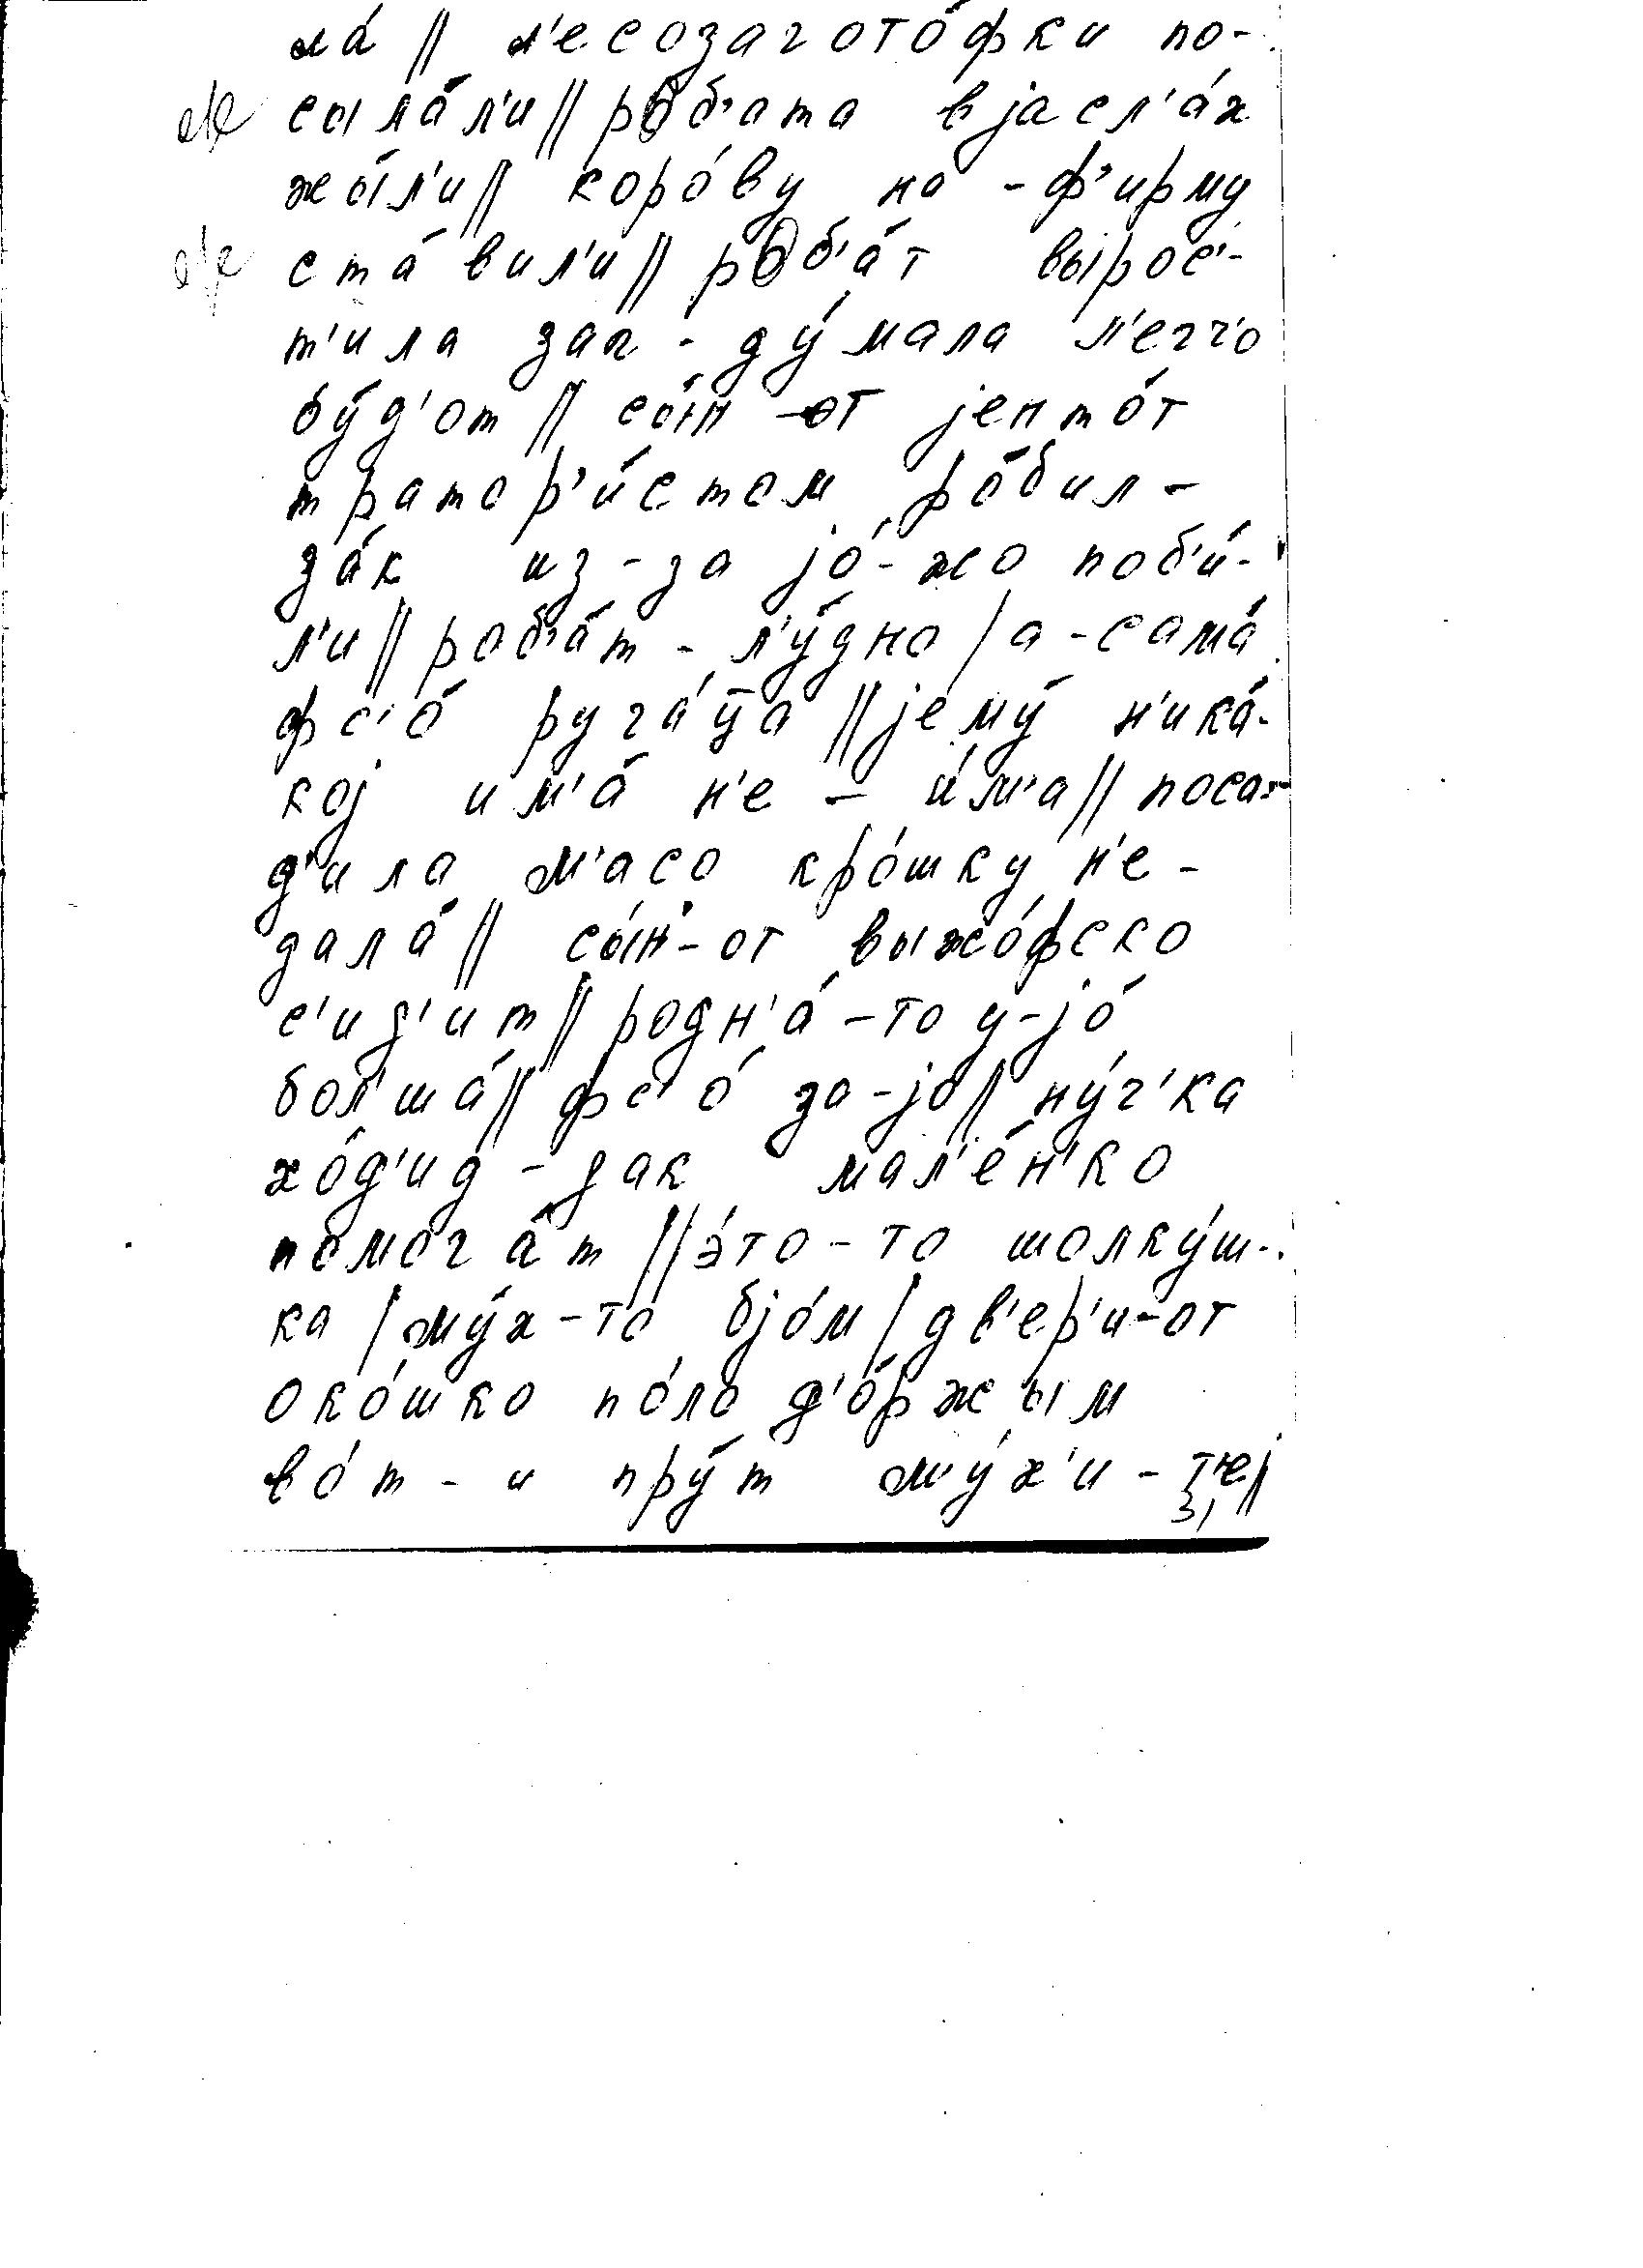 ла́ // л'есозагото́фки по-
сыла́л'и // роб'ата в јасл'а́х
жы́л'и // коро́ву на - ф'ирму
ста́вил'и // роб'а́т вырос'-
т'ила заг - ду́мала л'егч'о
бу́д'от // сы́н -от јентот
тратор'и́стом ро́бил -
за́к из-за јо́ - жо поб'и́-
л'и // роб'а́т - л'у́дно / а - сама́
фс'о́ руга́ц̄а // јему́ н'ика́-
кој им'а́ н'е - и́м'а // поса-
д'ила м'асо кро́шку н'е -
дала́ // сы́н - от выжо́фско
с'ид'ит // родн'а́ - то у-јо́
бол'ша́ // фс'о́ за-јо // ну́ч'ка
хо́д'ид - дак мал'е́н'ко
помога́т // э́то - то шолку́ш-
ка / му́х - то бјо́м / дв'ер'и-от
око́шко по́ло д'о́ржым
во́т - и пру́т му́х'и - т'е //
31